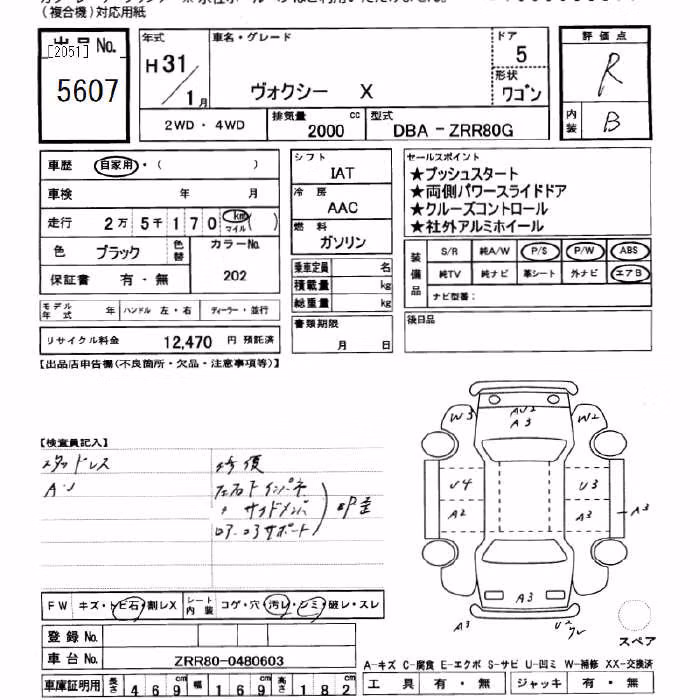 (複合機)対応用紙
出品No.
[2051]
5607
年式
H 31 / 1 月
車名・グレード
ヴォクシー X
ドア
5
形状
ワゴン
2WD・4WD
排気量 cc
2000
型式
DBA-ZRR80G
評価点
R
内装
B
車歴 自家用・( )
車検 年 月
走行 2万 5千 1 7 0 km マイル ( )
色 ブラック 色替 カラーNo.
保証書 有・無 202
モデル年式 年 ハンドル 左・右 ディーラー・並行
リサイクル料金 12,470 円 預託済
シフト
IAT
冷房
AAC
燃料
ガソリン
乗車定員 名
積載量 kg
総重量 kg
書類期限
月 日
セールスポイント
★プッシュスタート
★両側パワースライドドア
★クルーズコントロール
★社外アルミホイール
装備品
S/R 純A/W P/S P/W ABS
純TV 純ナビ 革シート 外ナビ エアB
ナビ型番:
後日品
【出品店申告欄(不良箇所・欠品・注意事項等)】
【検査員記入】
スタッドレス
修復
サイドメンバ
サポート
W3 AU2 A3 W2
U4 U3
A2 A3 A3
A3
A3
FW キズ・トビ石・割レX シート内装 コゲ・穴・汚レ・シミ・破レ・スレ
スペア
登録No.
車台No. ZRR80-0480603
車庫証明用 長さ 469cm 幅 169cm 高さ 182cm
A-キズ C-腐食 E-エクボ S-サビ U-凹ミ W-補修 XX-交換済
工具 有・無 ジャッキ 有・無